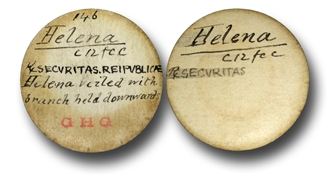 146
Helena
C12fcc
SECVRITAS.REIPVBLICÆ
Helena veiled with
branch held downward
GHG
Helena
C12fcc
SECVRITAS